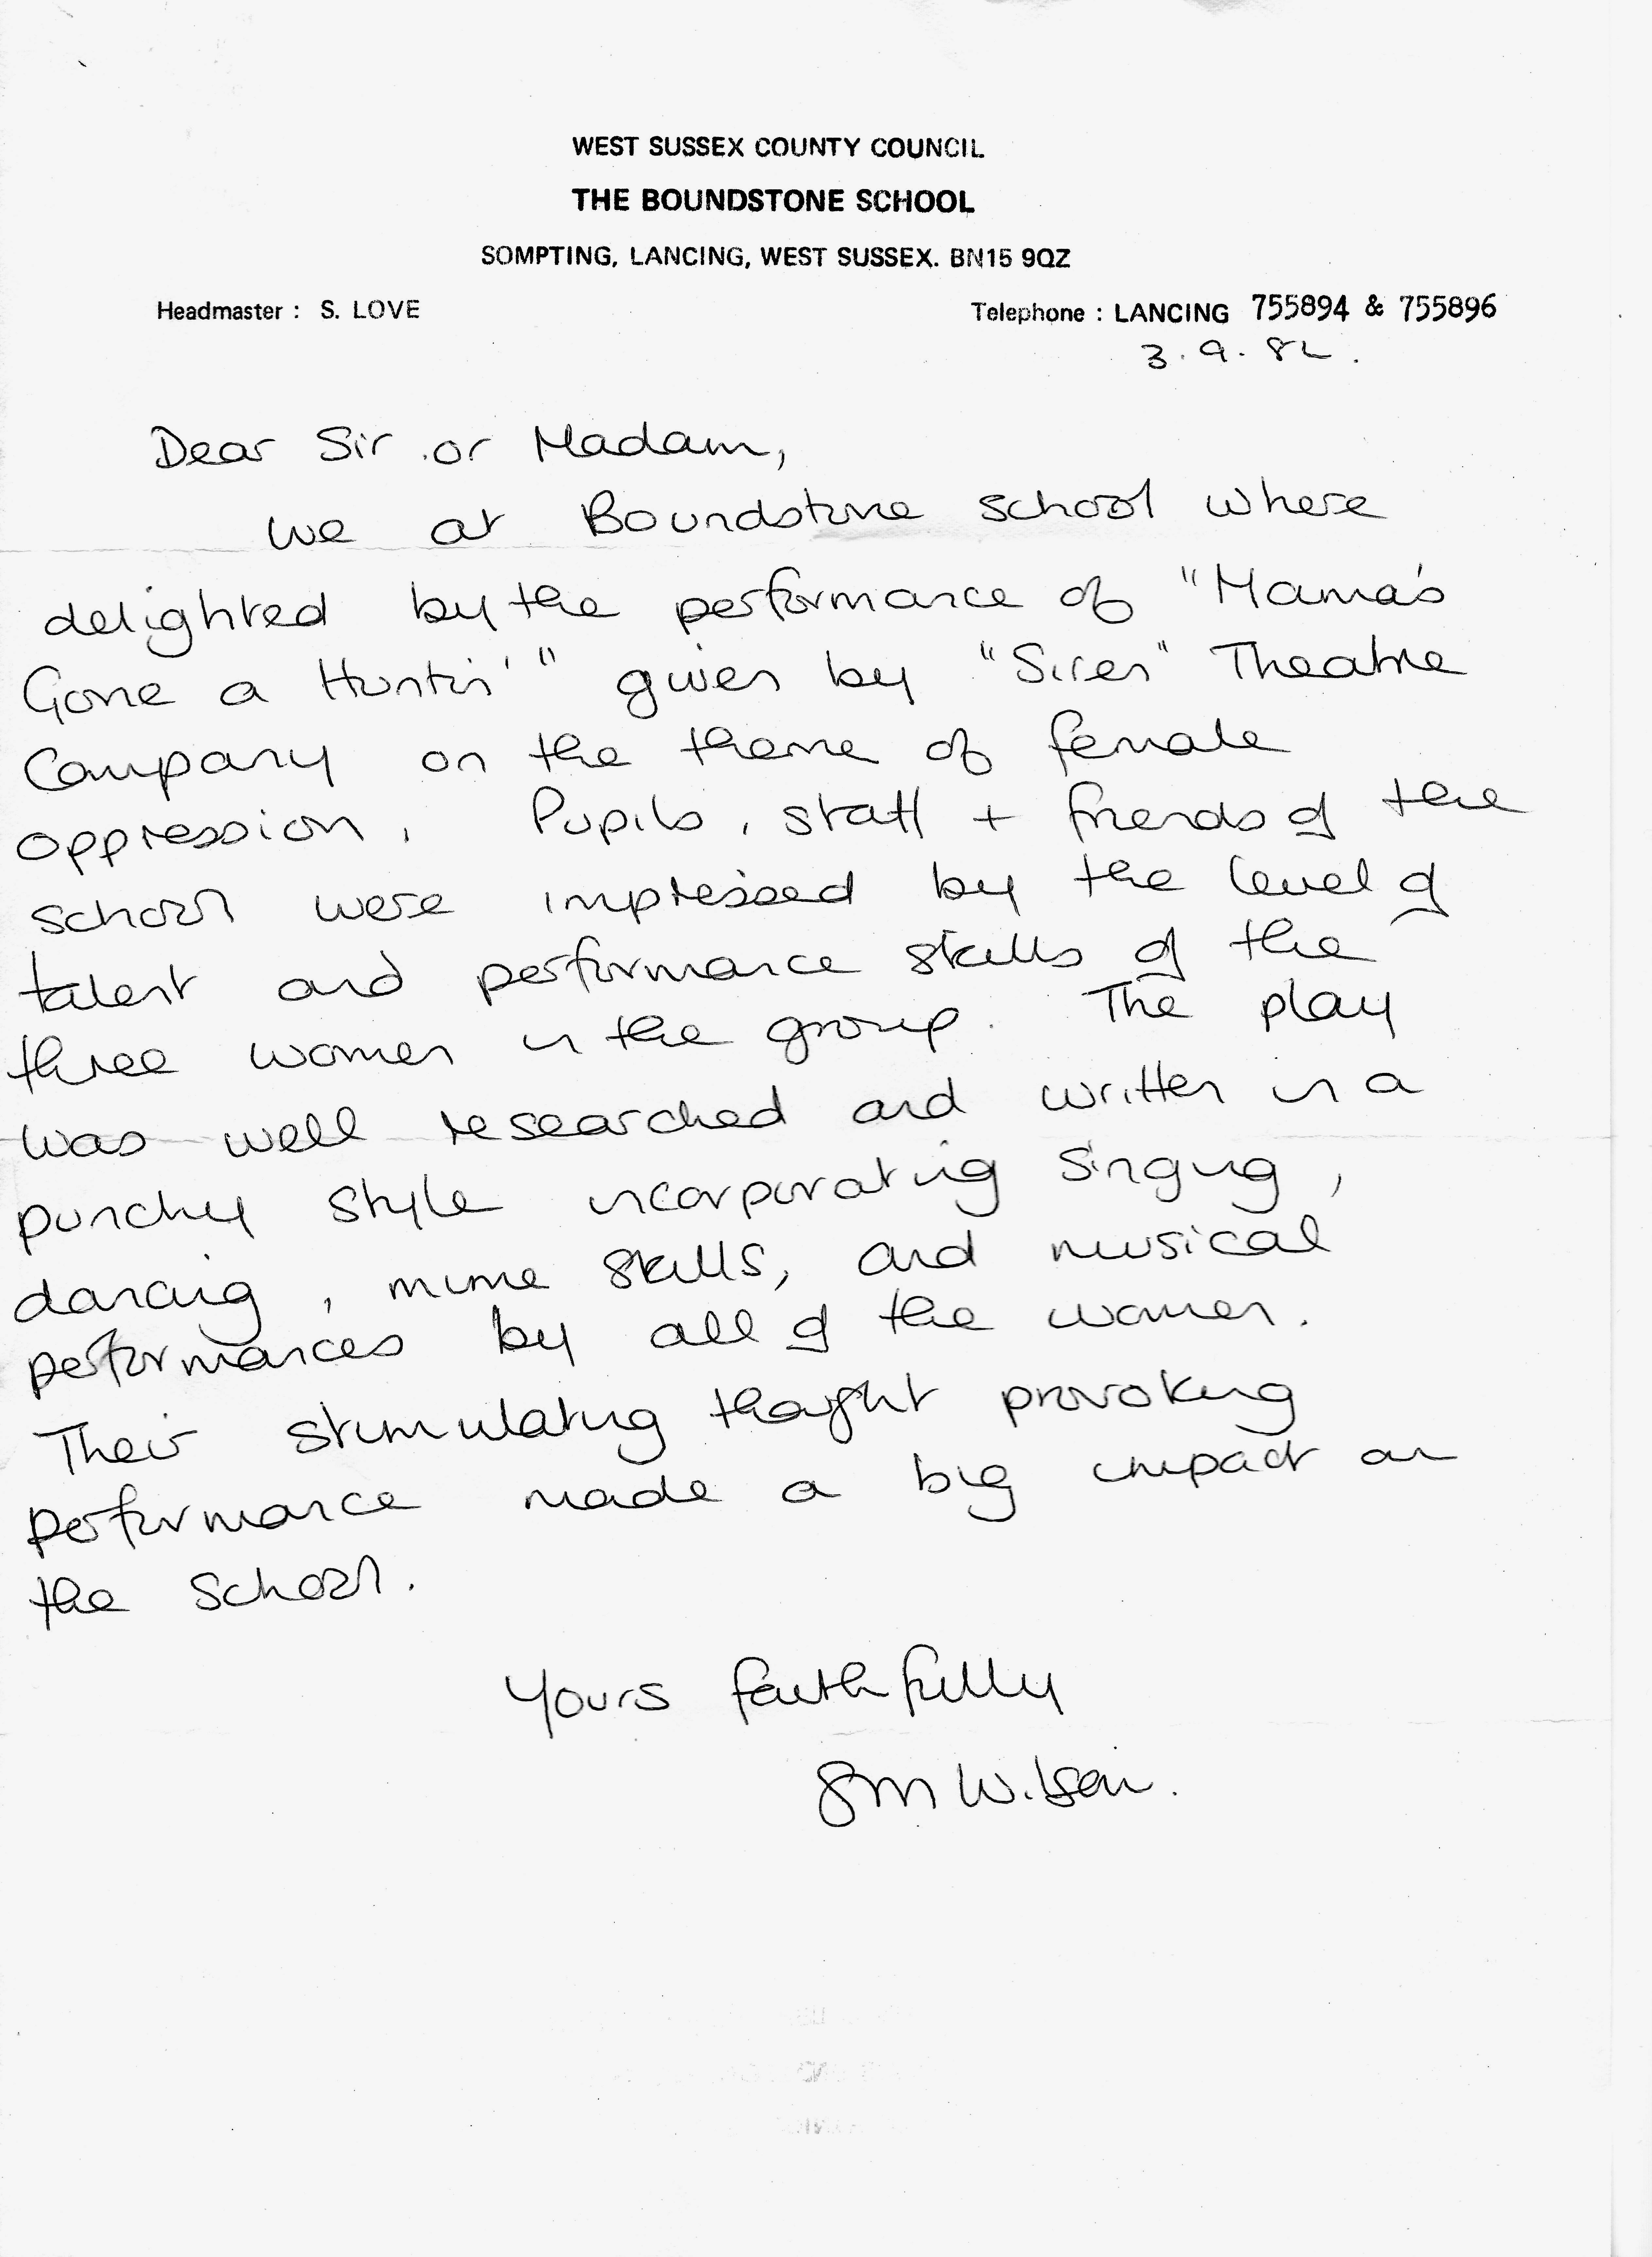 WEST SUSSEX COUNTY COUNCIL
THE BOUNDSTONE SCHOOL
SOMPTING, LANCING, WEST SUSSEX. BN15 9QZ
Headmaster : S. LOVE Telephone : LANCING 755894 & 755896
3.9.82.
Dear Sir or Madam,
We at Boundstone school where
delighted by the performance of "Mama's
Gone a Huntin'" given by "Siren" Theatre
Company on the theme of female
oppression. Pupils, staff + friends of the
school were impressed by the level of
talent and performance skills of the
three women in the group. The play
was well researched and written in a
punchy style incorporating singing,
dancing, mime skills, and musical
performances by all of the women.
Their stimulating thought provoking
performance made a big impact on
the school.
Yours faithfully
Wilson.